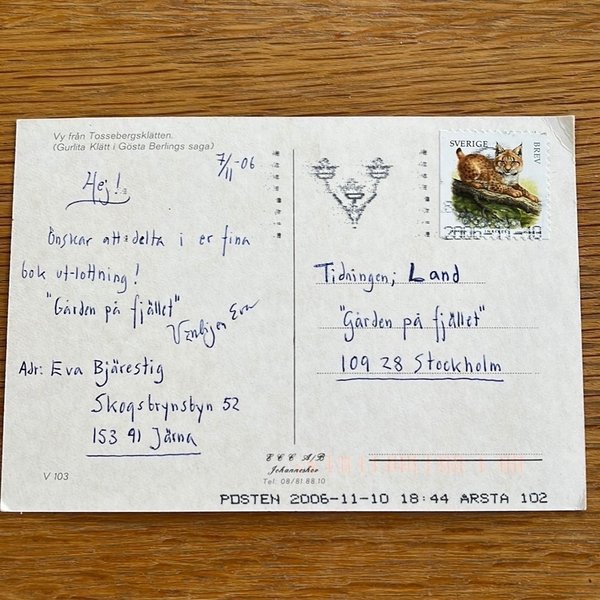 Vy från Tossebergsklätten.
(Gurlita Klätt i Gösta Berlings saga)
7/11-06
Hej!
Önskar att delta i er fina
bok ut-lottning!
"Gården på fjället"
Vänligen Eva
Adr: Eva Bjärestig
Skogsbrynsbyn 52
153 91 Järna
V 103
SVERIGE BREV
2006-11-10
Tidningen; Land
"Gården på fjället"
109 28 Stockholm
E C C A/B
Johanneshov
Tel. 08/81 88 10
POSTEN 2006-11-10 18:44 ARSTA 102